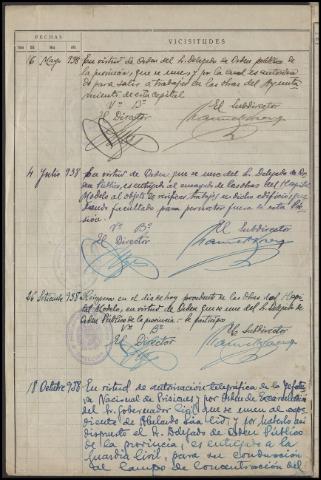 FECHAS
VICISITUDES
16 Mayo 938 En virtud de Orden del Sr. Delegado de Orden público de
la provincia, que se une, y por la cual es autorizado
para salir a trabajar en las obras del Ayunta-
miento de esta capital
Vº Bº
El Director
El Subdirector
4 Julio 938 En virtud de Orden que se une del Sr. Delegado de Or-
den Público, es entregado al encargado de las obras del
Modelo al objeto de verificar trabajos en dicho edificio,
facultado para pernoctar fuera de esta Pri-
sión.
Vº Bº
El Director
El Subdirector
938 Reingresa en el dia de hoy procedente de las Obras del
Modelo, en virtud de Orden que se une del Sr. Delegado de
Orden Público de la provincia.
Vº Bº
El Director
El Subdirector
18 Octubre 938 En virtud de autorización telegráfica de la Jefatu-
ra Nacional de Prisiones y por Orden de Excarcelación
del Sr. Gobernador Civil que se unen al expe-
diente de Abelardo y por haberlo así
dispuesto el Sr. Delegado de Orden Público
de la provincia, es entregado a la
Guardia Civil, para su conducción
al Campo de Concentración del